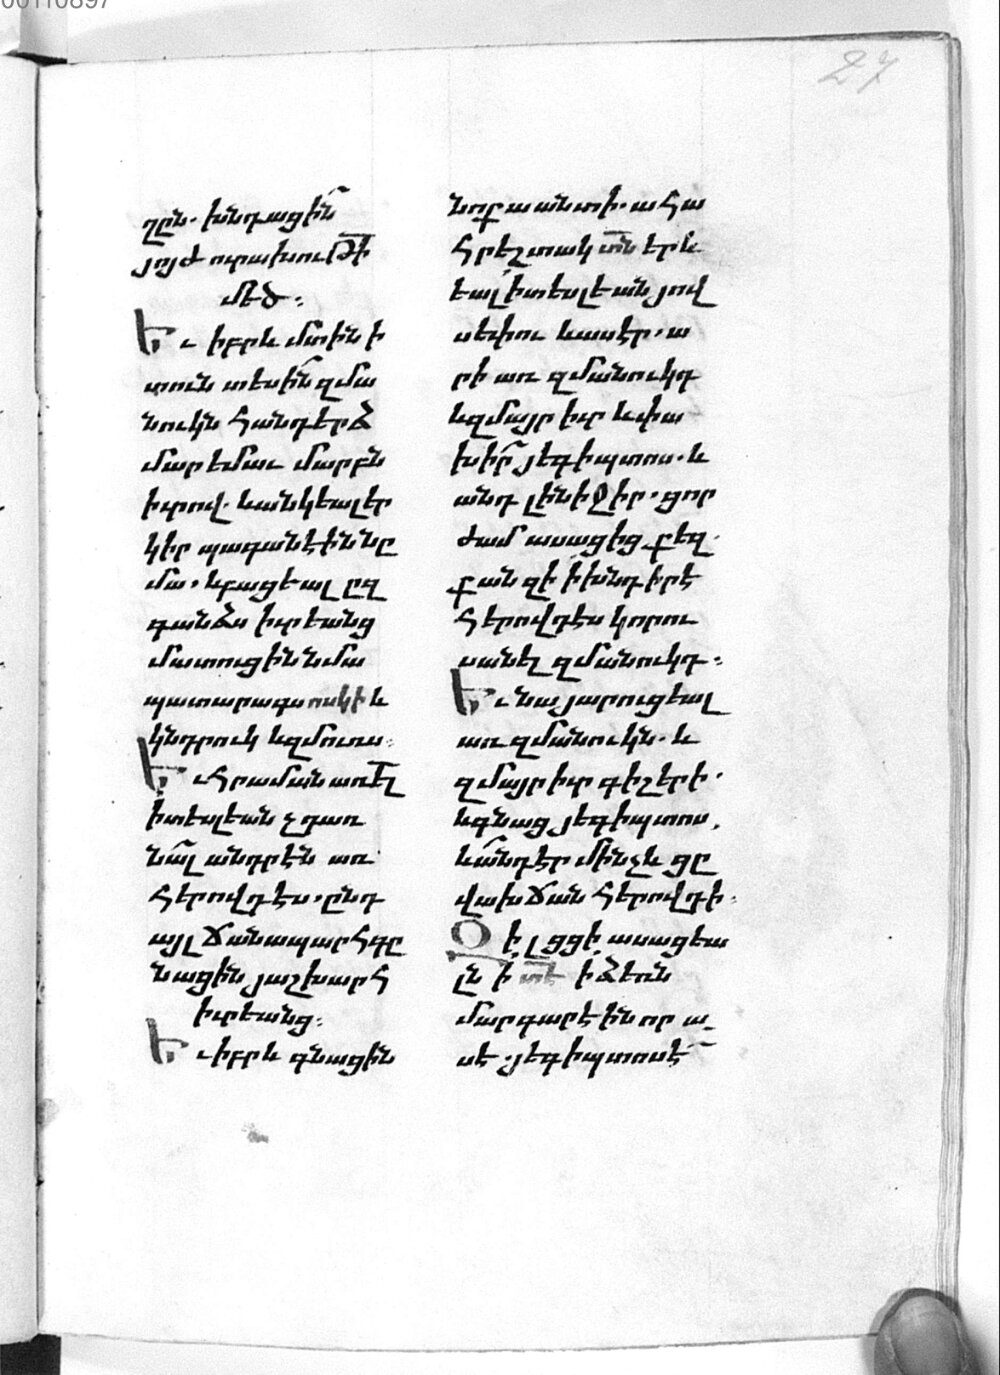 00110897
27
ղըն. խնդացին
յոյժ ուրախութի
մեծ։
Եւ իբրև մտին ի
տուն տեսին զմա
նուկն հանդերձ
մարեմաւ մարբն
իւրով. և անկեալ եր
կիր պագանէին նը
մա. և բացեալ ըզ
գանձս իւրեանց
մատուցին նմա
պատարագս ոսկի և
կնդրուկ և զմուռս։
Եւ հրաման առել
ի տեսլեան չդառ
նալ անդրէն առ
հերովդէս. ընդ
այլ ճանապարհ գը
նացին յաշխարհ
իւրեանց։
Եւ իբրև գնացին
նոքա անտի. ահա
հրեշտակ տն երև
եալ ի տեսլեան յով
սեփու և ասէր. ա
րի առ զմանուկդ
և զմայր իւր և փա
խիր յեգիպտոս. և
անդ լինիջիր. ցոր
ժամ ասացից քեզ.
քանզի ի խնդիր է
հերովդէս կորու
սանել զմանուկդ։
Եւ նա յարուցեալ
առ զմանուկն. և
զմայր իւր գիշերի.
և գնաց յեգիպտոս.
և անդ էր մինչև ցը
վախճան հերովդի։
Զի լցցի ասացեա
լն ի տէ ի ձեռն
մարգարէին որ ա
սէ. յեգիպտոսէ